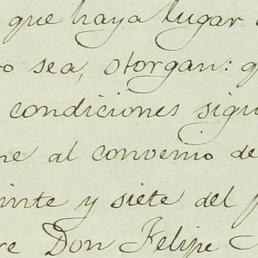 que haya lugar
o sea, otorgan: q
condiciones sigu
ne al convenio de
inte y siete del p
re Don Felipe